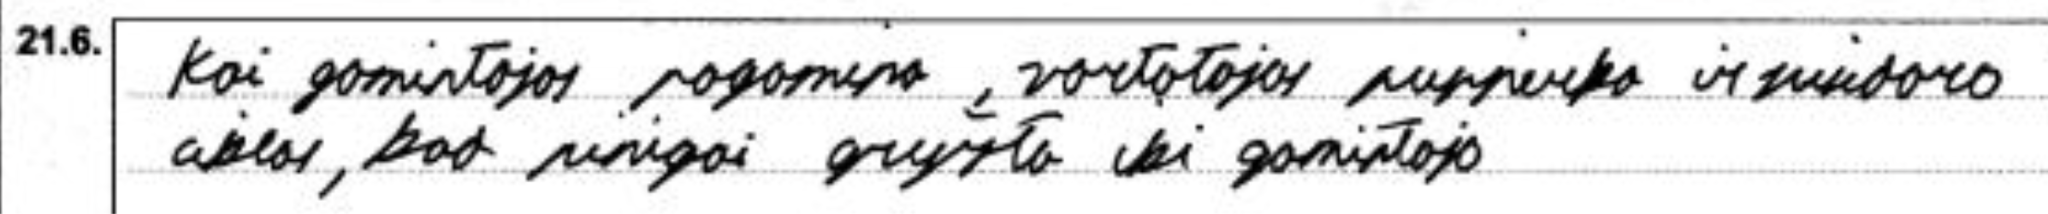 21.6. Kai gamintojas pagamina, vartotojas nusiperka ir susidaro
ciklas, kad pinigai grįžta iki gamintojo